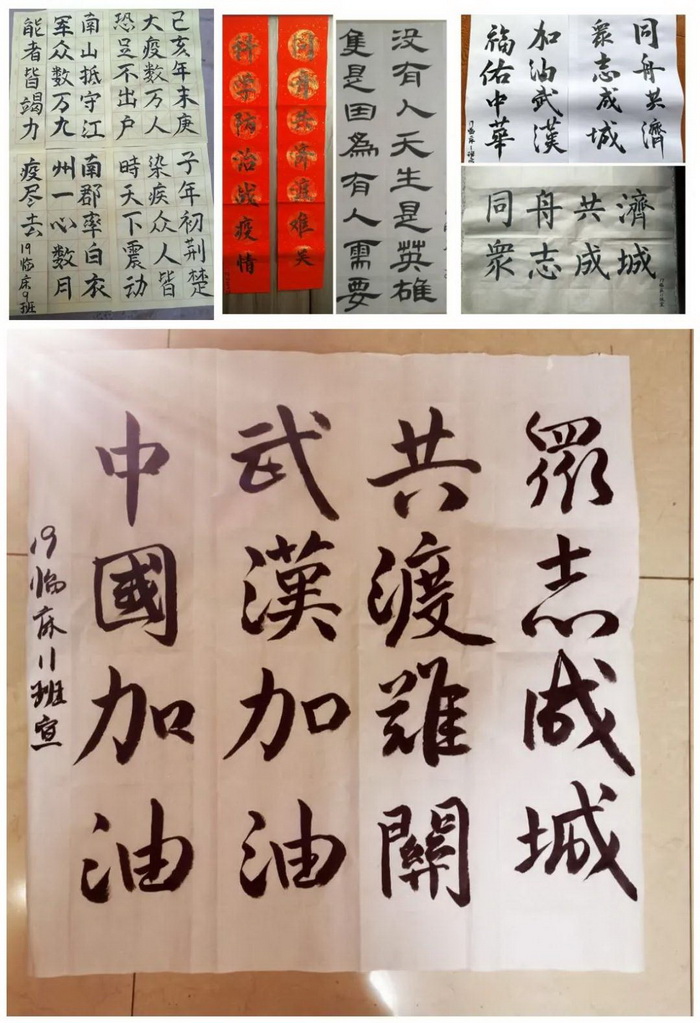 己亥年末庚子年初荆楚
大疫数万人染疾众人皆
恐足不出户時天下震动
南山抵守江南郡率白衣
军众数万九州一心数月
能者皆竭力疫尽去
19临床9班
同音共律渡难关
科学防治战疫情
没有人天生是英雄
隻是因為有人需要
同舟共濟
眾志成城
加油武漢
福佑中華
19临床11班
同舟共濟
眾志成城
眾志成城
共渡難關
武漢加油
中國加油
19临床11班宣